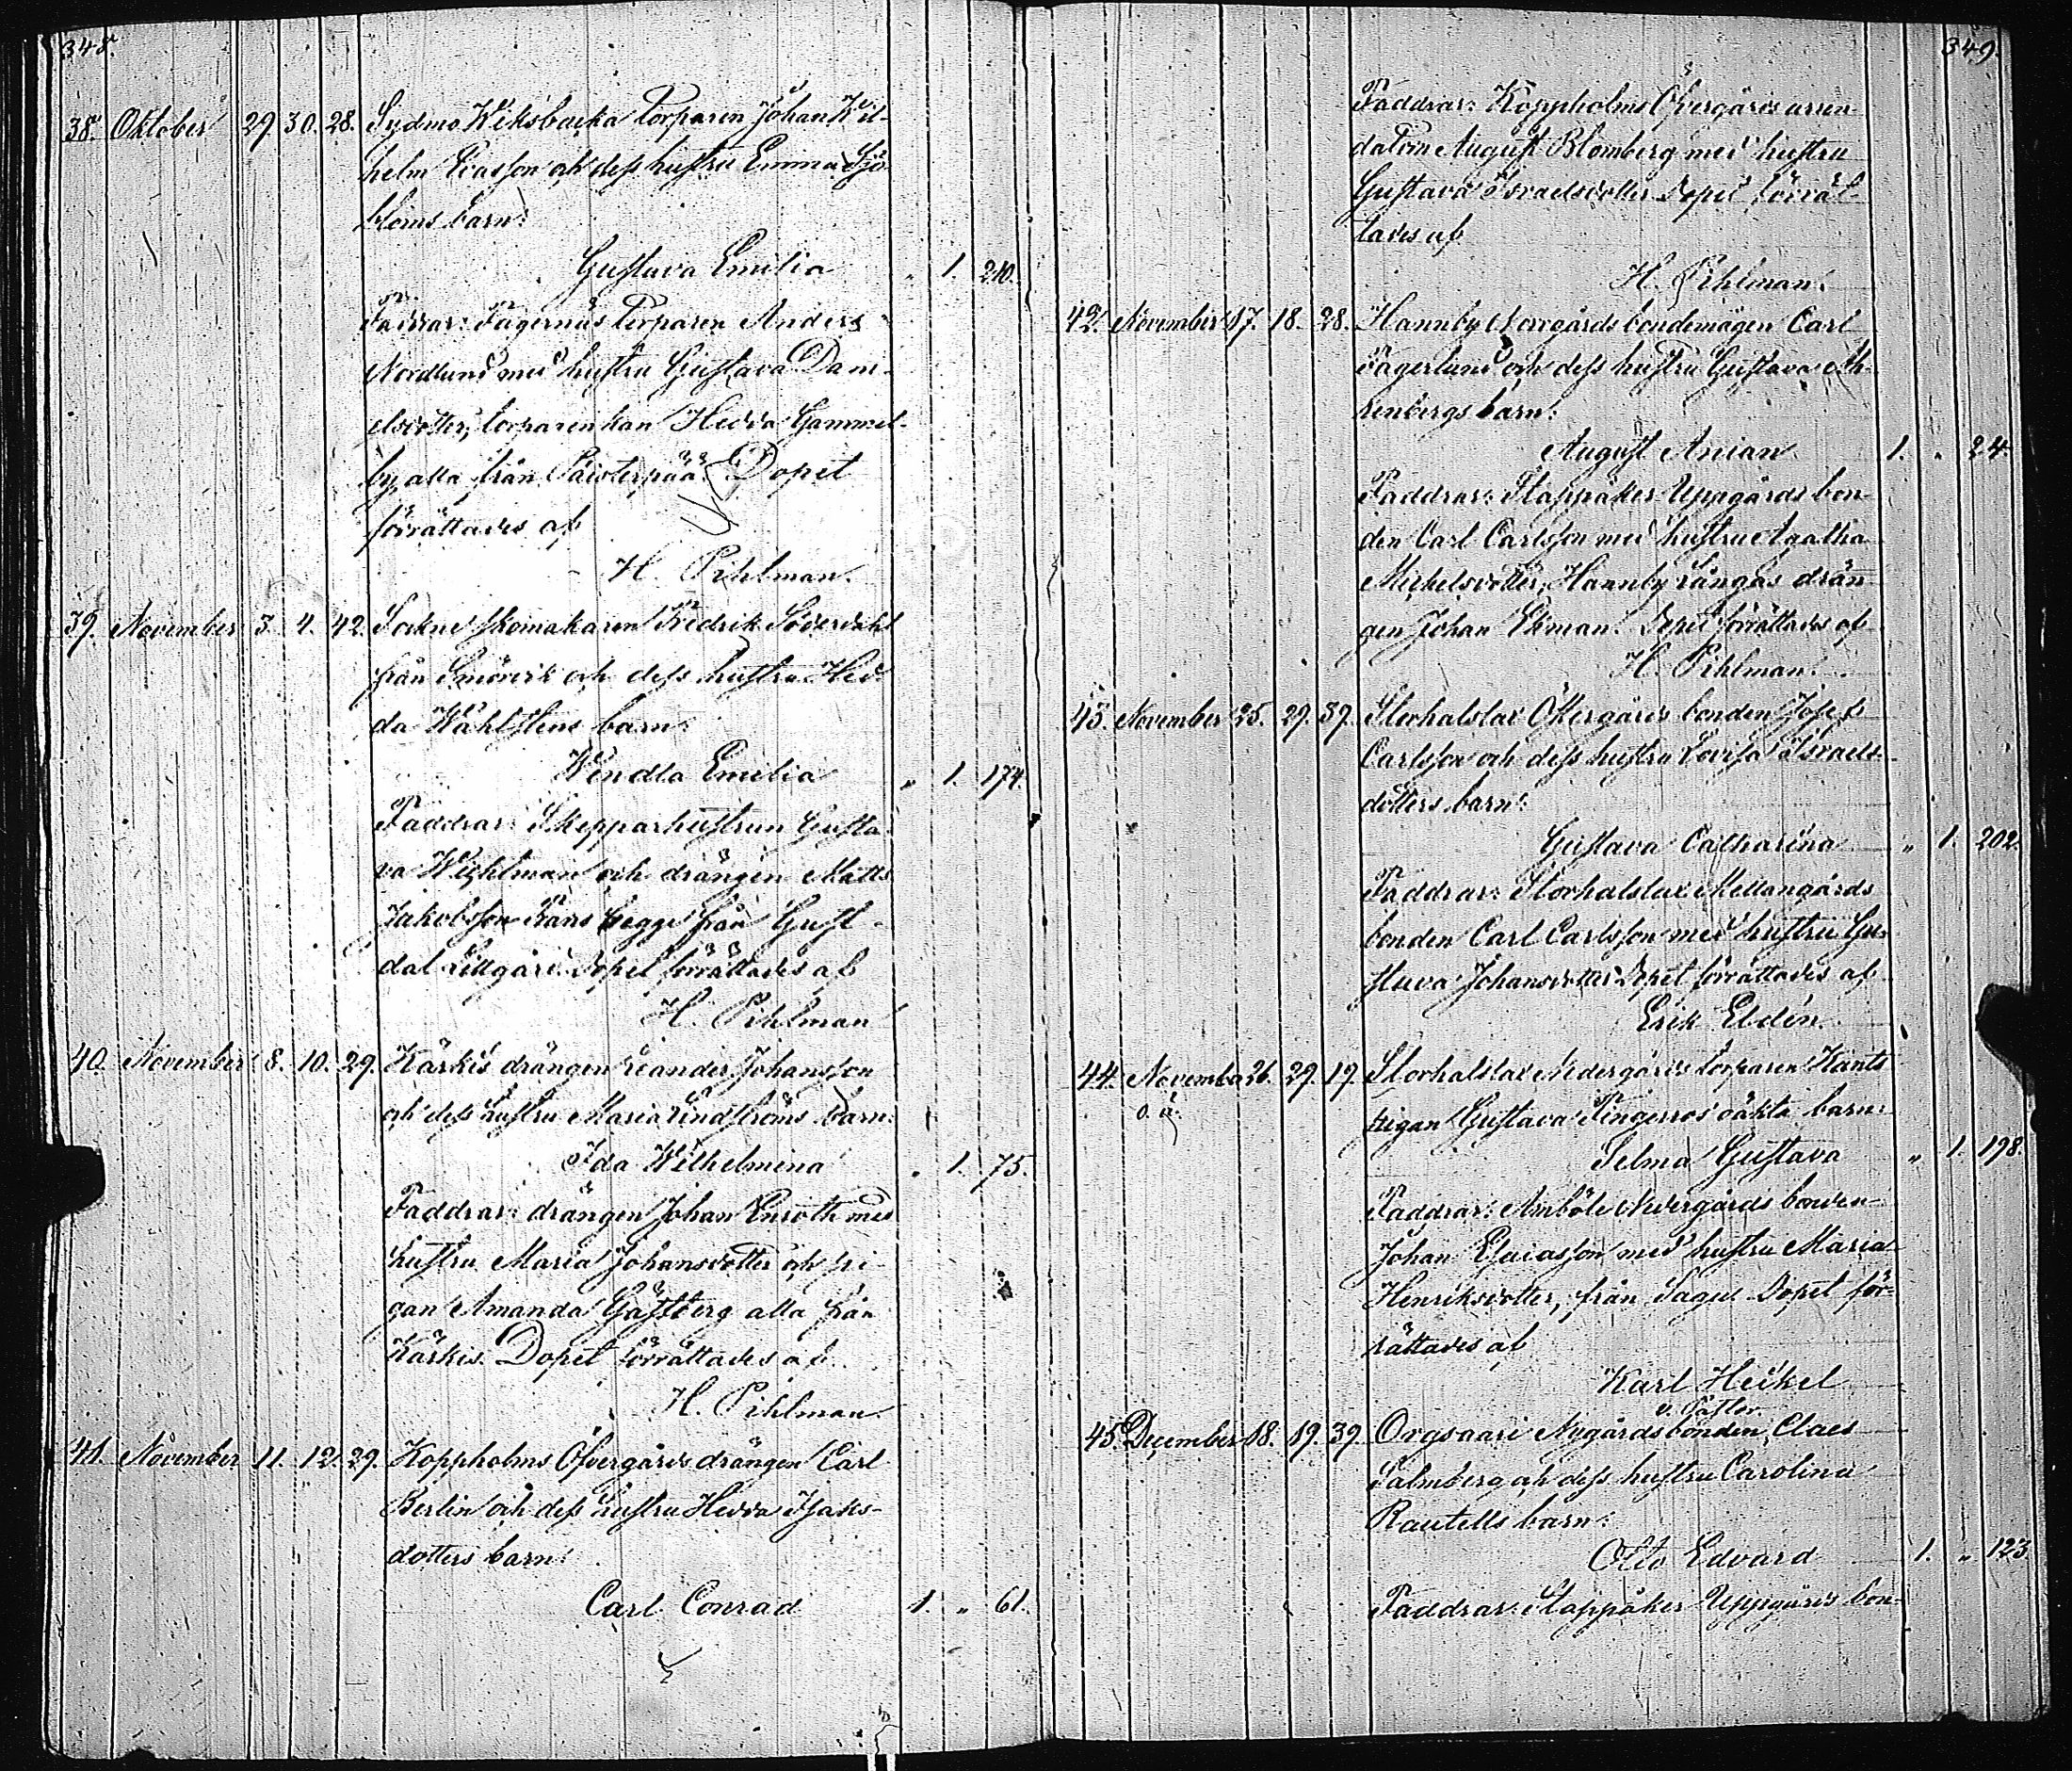 348.
38. Oktober 29. 30. 28. Sydmo Wiksbacka Torparen Johan Wil-
helm Isasson och dess hustru Emma Sjö-
bloms barn:
Gustava Emilia " 1. 210.
Faddrar: Fagernäs Torparen Anders
Nordlund med hustru Gustava Dani-
elsdotter, torparenkan Hedda Gammel-
by, alla från Paisterpää. Dopet
förrättades af
H. Pihlman.
39. November 3. 4. 42. Sockne skomakaren Fredrik Söderdahl
från och dess hustru Hed-
da Wahlstens barn:
Wendla Emilia " 1. 174.
Faddrar: Skepparhustrun Gusta-
va Wighlman och drängen Matts
Jakobsson begge från Gust-
dal Lillgård. Dopet förrättades af
H. Pihlman
40. November 8. 10. 29. Kärkis drängen Leander Johansson
och dess hustru Maria Lindströms barn:
Ida Wilhelmina " 1. 75.
Faddrar: drängen Johan Enroth med
hustru Maria Johansdotter och pi-
gan Amanda Gästberg alla från
Kärkis. Dopet förrättades af
H. Pihlman.
41. November 11. 12. 29. Koppholms Öfvergårds drängen Carl
Berlin och dess hustru Hedda Isaks-
dotters barn:
Carl Conrad 1. " 61.
349.
Faddrar: Koppholms Öfvergårds arren-
datorn August Blomberg med hustru
Gustava Israelsdotter. Dopet förrät-
tades af
H. Pihlman.
42. November 17. 18. 28. Hannby Norrgårds bondemågen Carl
Fagerlund och dess hustru Gustava
barn:
August Anian 1. " 24.
Faddrar: Slappåker Uppgårds bon-
den Carl Carlsson med hustru Agatha
Michelsdotter, Hannby Långas drän-
gen Johan Ekman. Dopet förrättades af
H. Pihlman.
43. November 25. 29. 37. Storhalslax Öfvergårds bonden Josef
Carlsson och dess hustru Lovisa Israels-
dotters barn:
Gustava Catharina " 1. 202.
Faddrar: Storhalslax Mellangårds
bonden Carl Carlsson med hustru Gu-
stava Johansdotter. Dopet förrättades af
Erik Eldén.
44. November 26. 29. 19. Storhalslax Nedergårds torparen
o. ä. pigan Gustava Fingerroos' oäkta barn:
Selma Gustava " 1. 198.
Faddrar: Amböle Nedergårds bonden
Johan Esaiasson med hustru Maria
Henriksdotter, från Sagu. Dopet för-
rättades af
Karl Heikel
v. Pastor.
45. December 18. 19. 39. Orgsaari Nygårds bonden Claes
Palmberg och dess hustru Carolina
Rautells barn:
Otto Edvard 1. " 123
Faddrar: Slappåker Uppgårds bon-